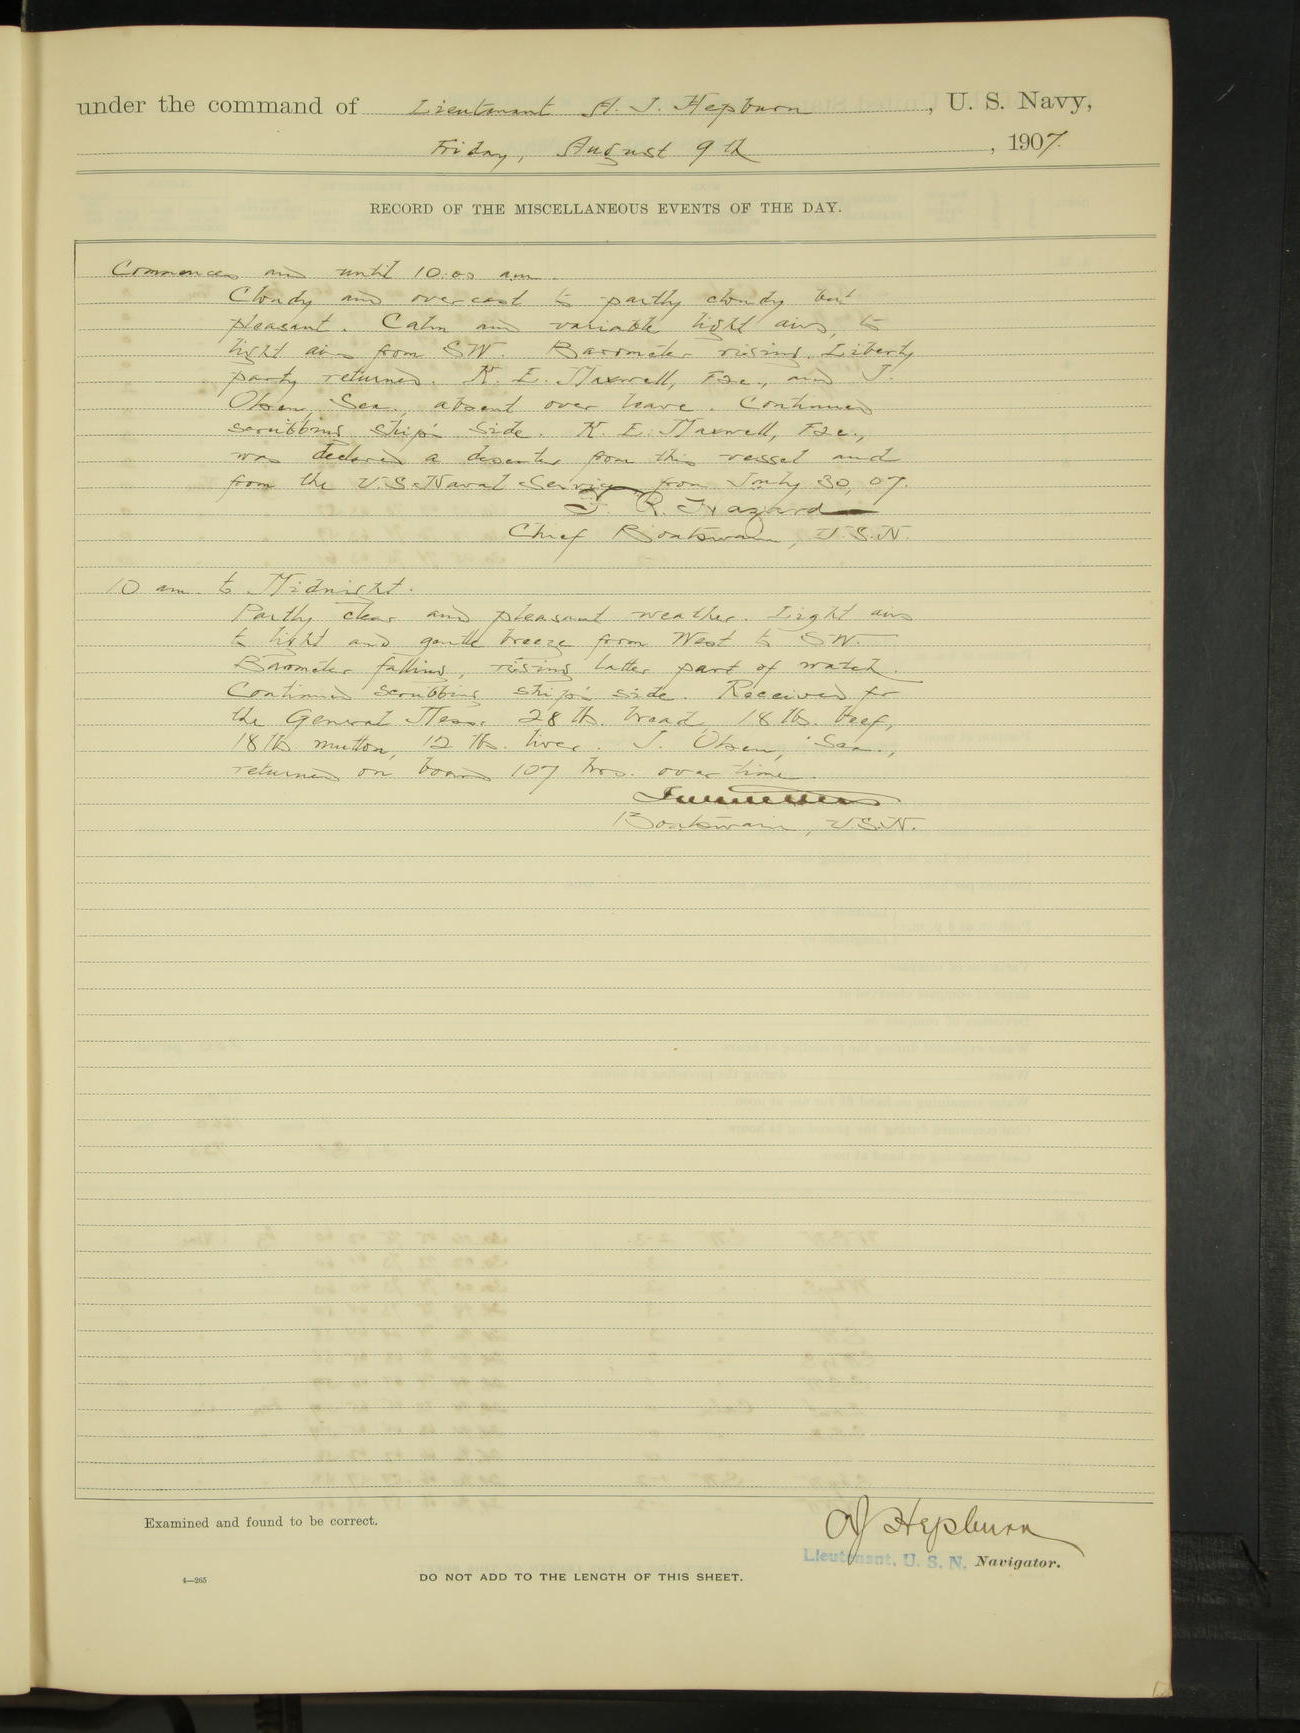 under the command of Lieutenant A. J. Hepburn, U. S. Navy,
Friday, August 9th, 1907.
RECORD OF THE MISCELLANEOUS EVENTS OF THE DAY.
Commences and until 10:00 am
Cloudy and overcast to partly cloudy but
pleasant. Calm and variable light airs, to
light airs from SW. Barometer rising. Liberty
party returned. K. E. Maxwell, F2c., and J.
Olsen, Sea., absent over leave. Continued
scrubbing ship's side. K. E. Maxwell, F2c.,
was declared a deserter from this vessel and
from the U.S. Naval Service from July 30, 07.
Chief Boatswain, U.S.N.
10 am. to Midnight.
Partly clear and pleasant weather. Light airs
to light and gentle breeze from West to SW.
Barometer falling, rising latter part of watch.
Continued scrubbing ship's side. Received for
the General Mess: 28 lb. bread, 18 lbs. beef,
18 lbs mutton, 12 lbs. liver. J. Olsen, Sea.,
returned on board 107 hrs. over time.
Boatswain, U.S.N.
Examined and found to be correct.
AJ Hepburn
Lieutenant, U. S. N. Navigator.
4—265
DO NOT ADD TO THE LENGTH OF THIS SHEET.